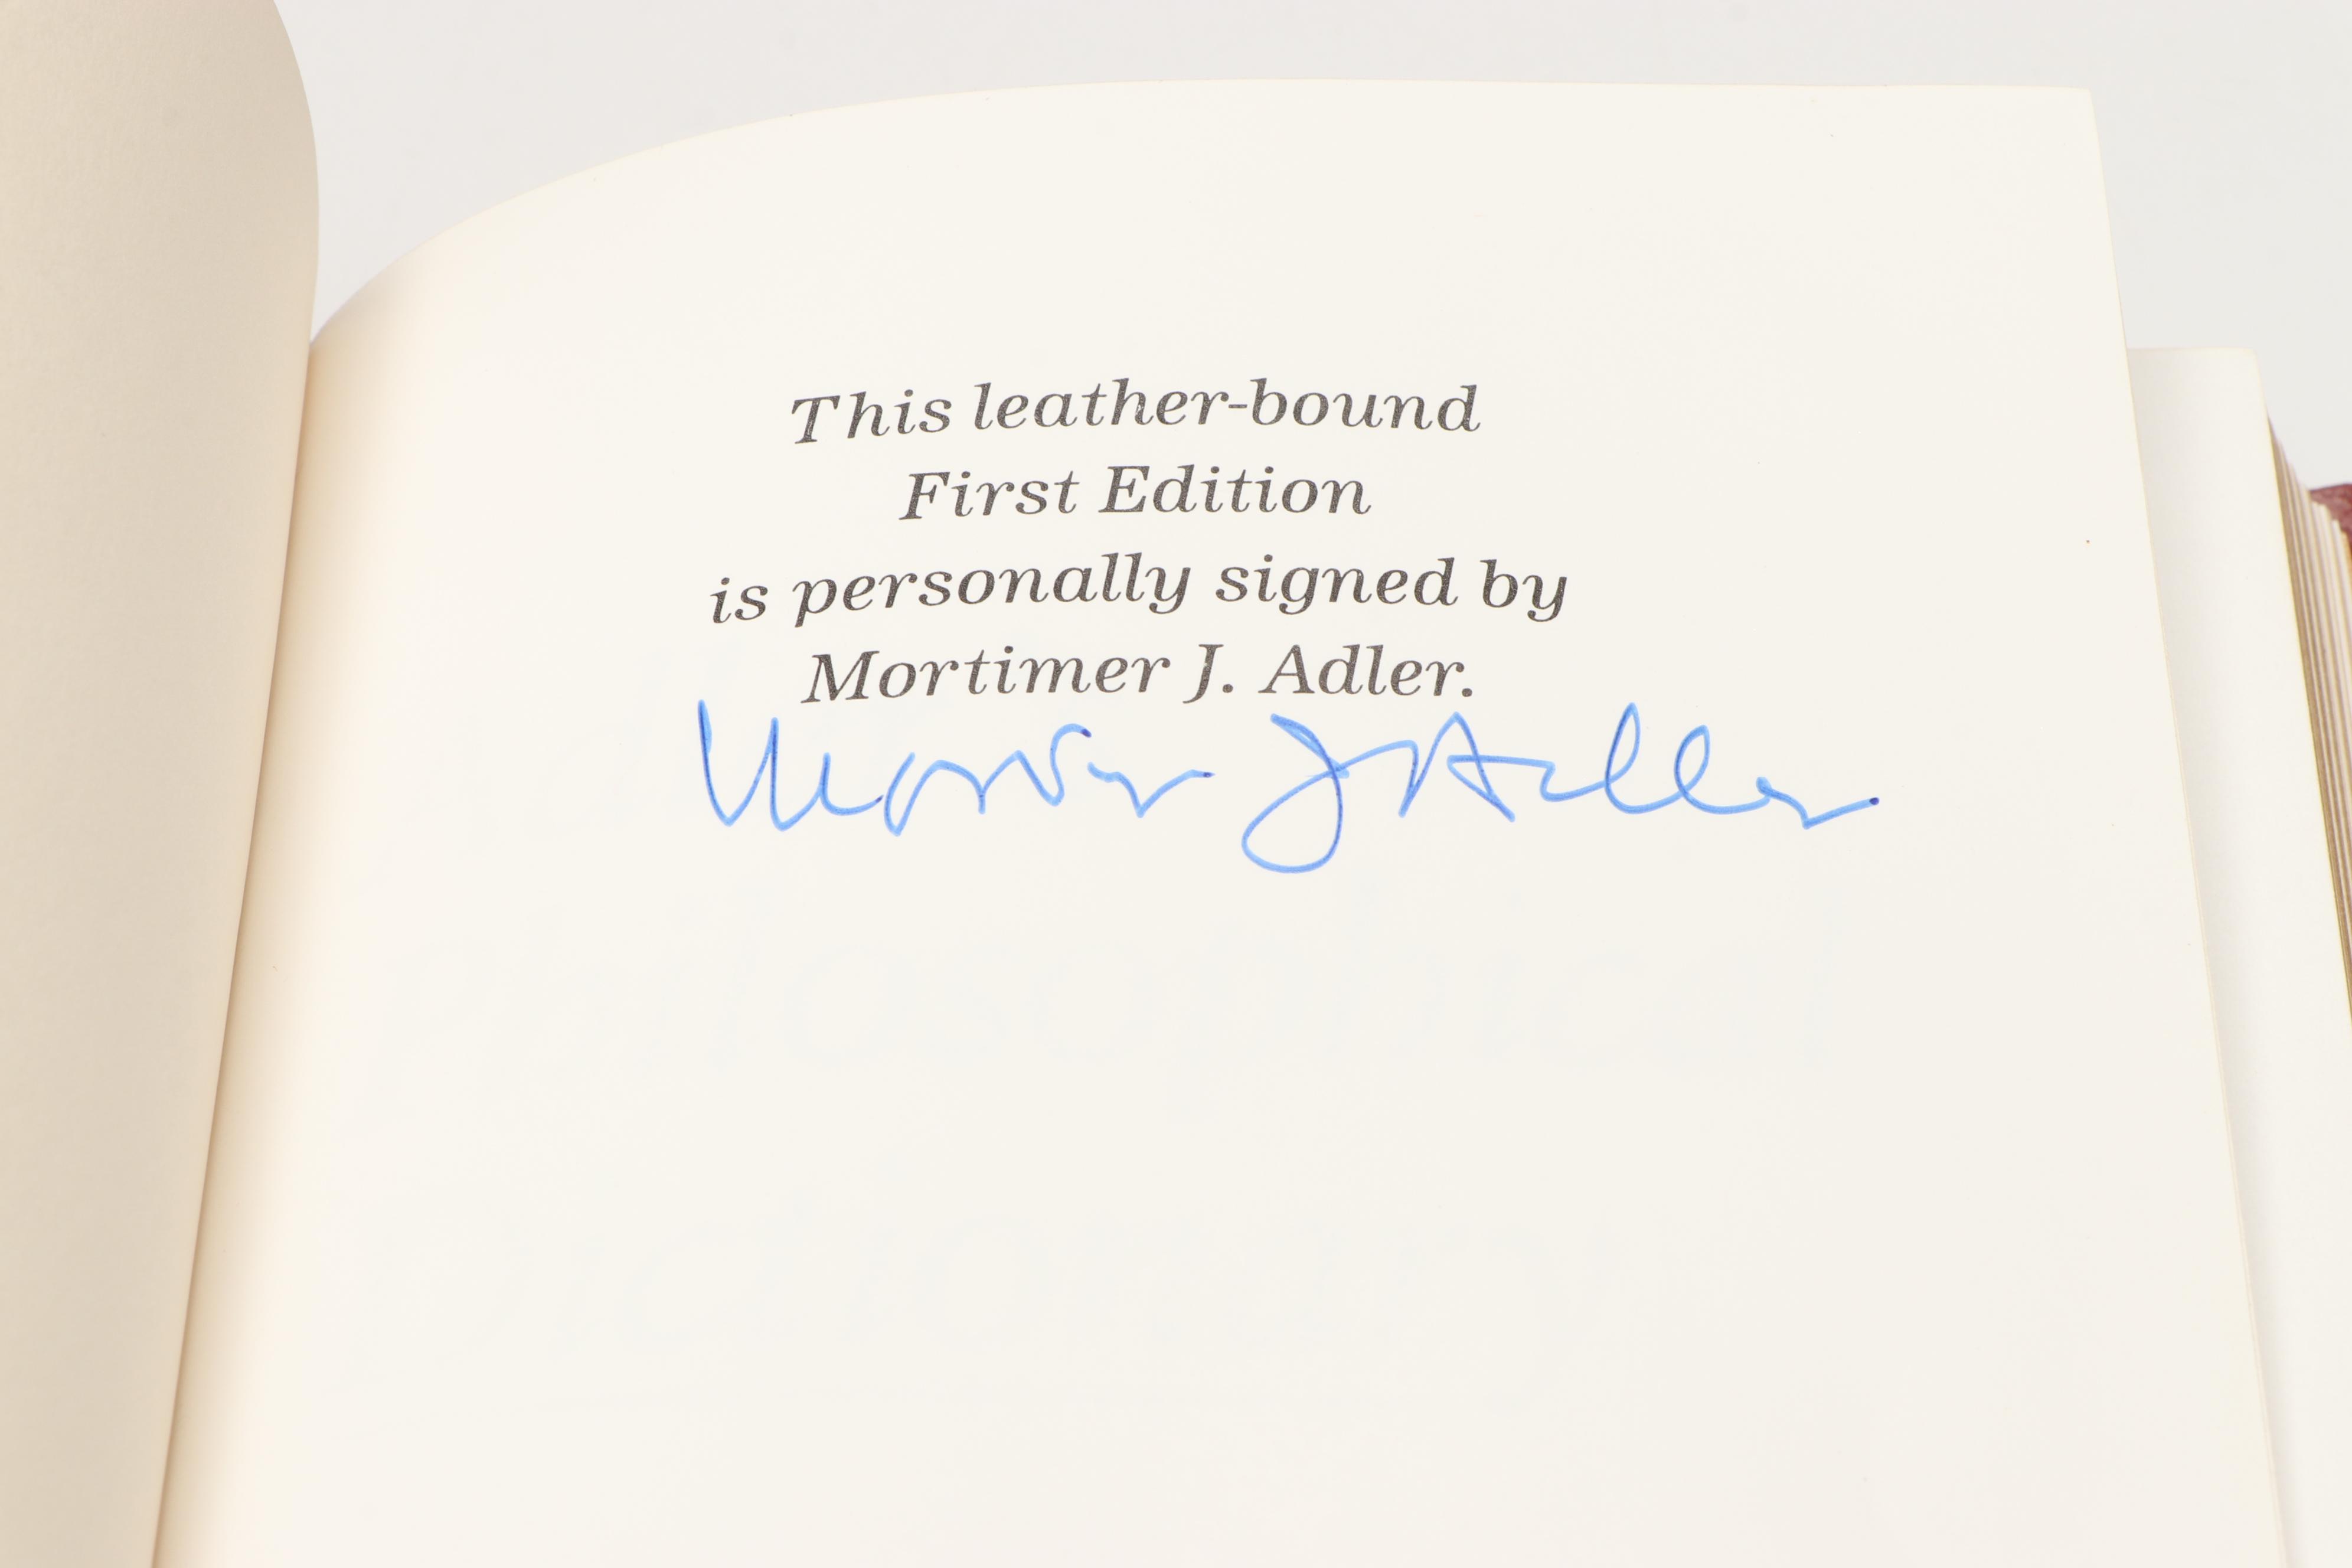 This leather-bound
First Edition
is personally signed by
Mortimer J. Adler.
Mortimer J Adler